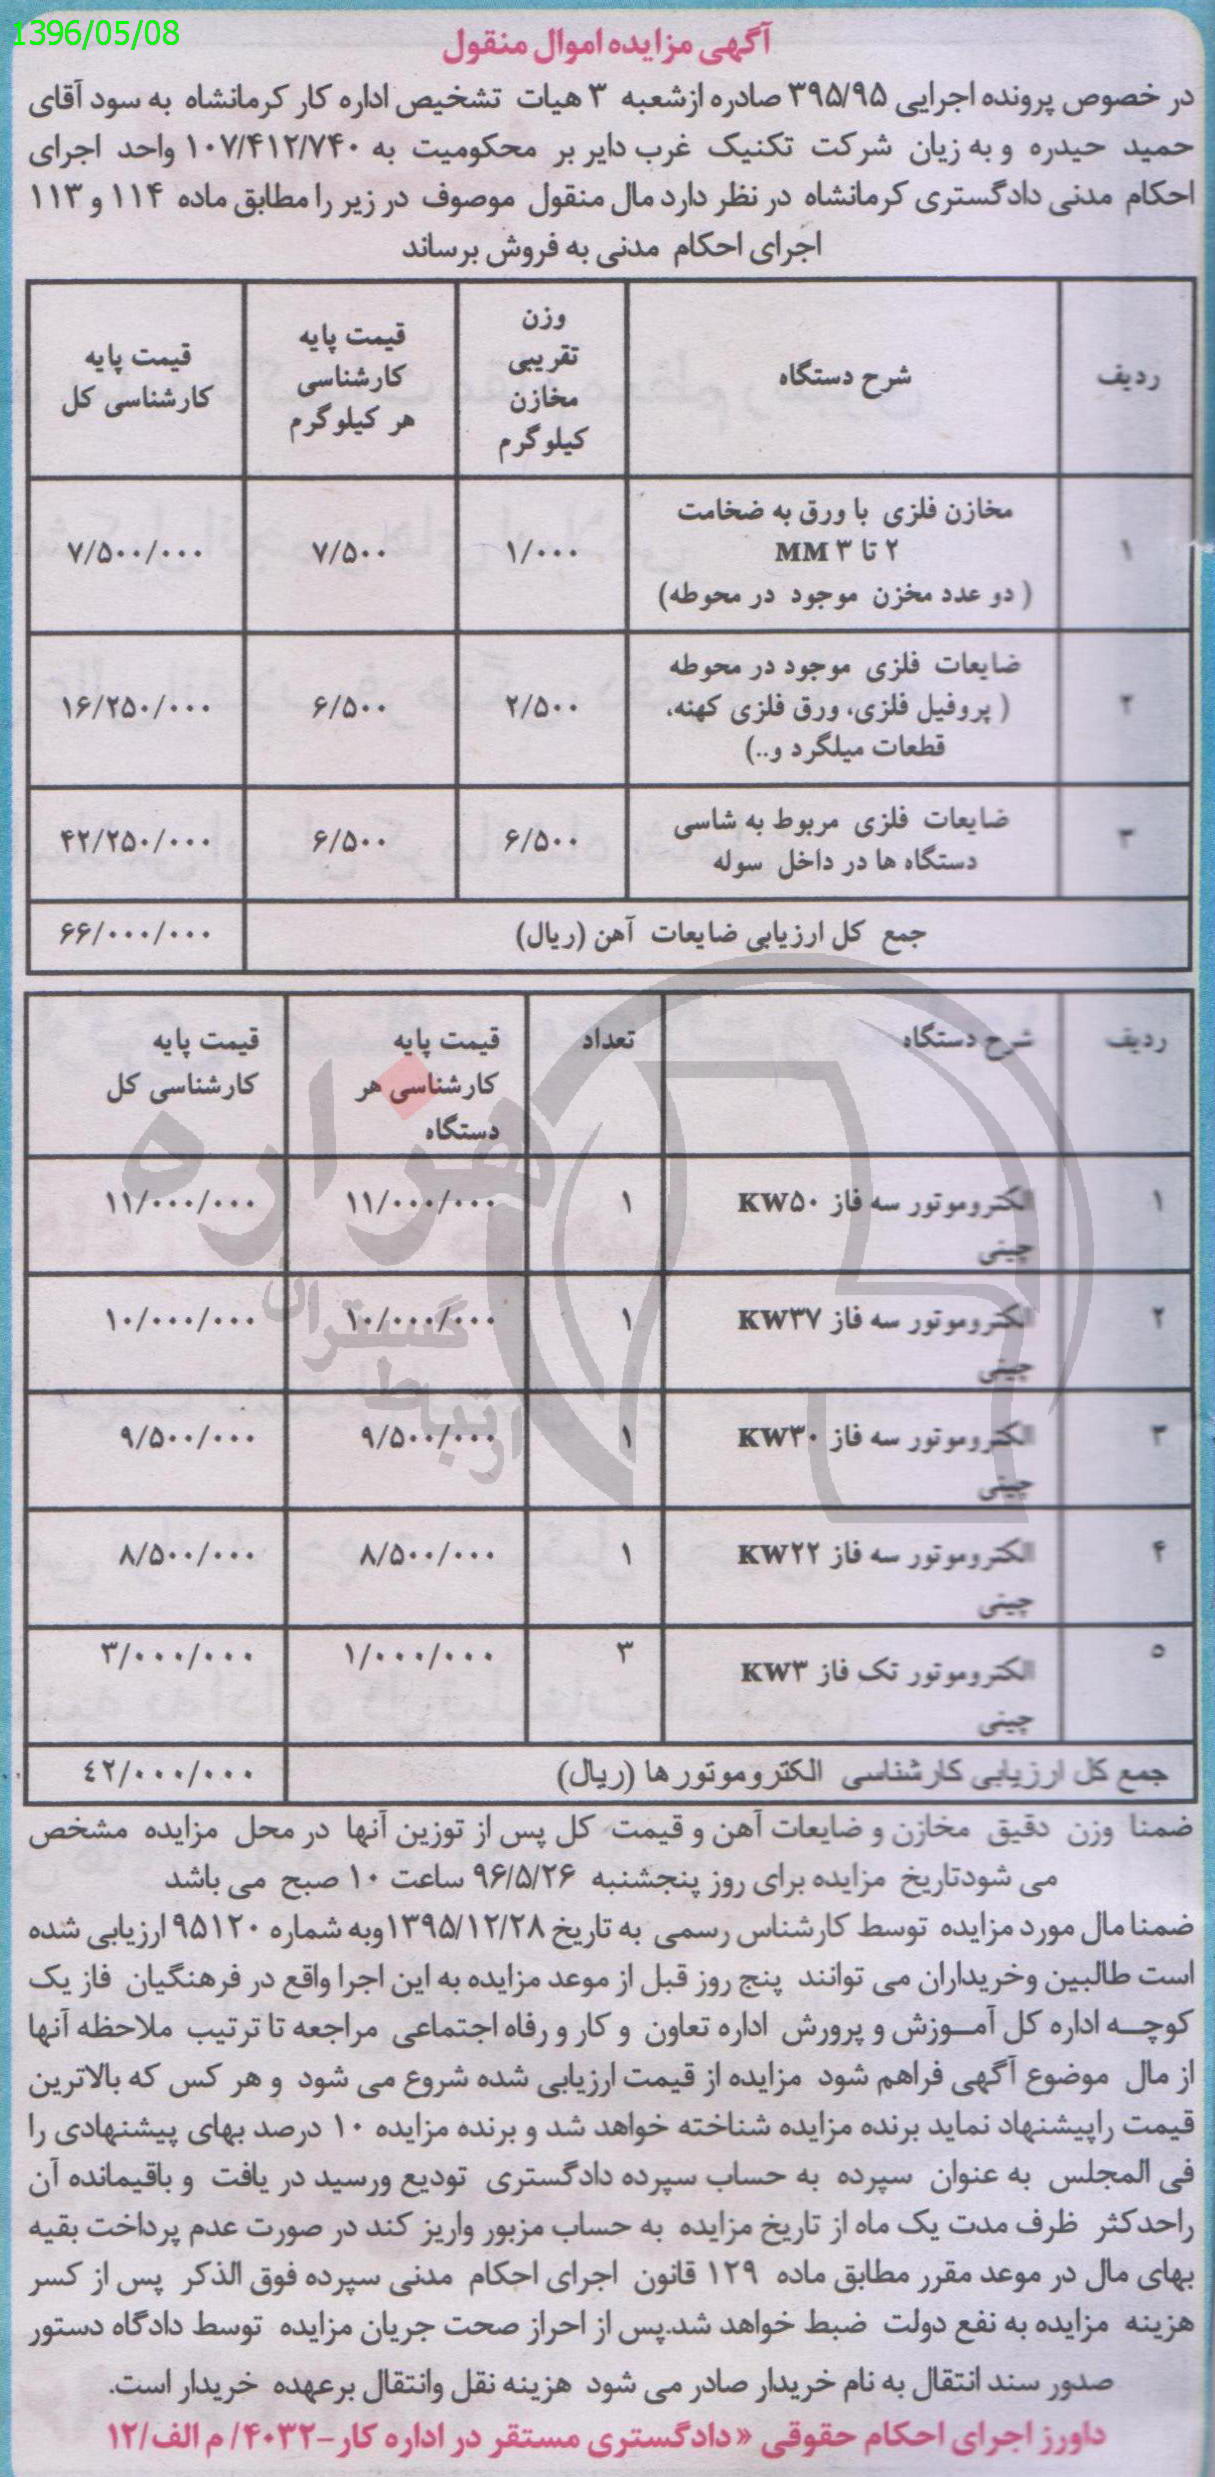 1396/05/08
آگهی مزایده اموال منقول
در خصوص پرونده اجرایی ۳۹۵/۹۵ صادره ازشعبه ۳ هیات تشخیص اداره کار کرمانشاه به سود آقای
حمید حیدره و به زیان شرکت تکنیک غرب دایر بر محکومیت به ۱۰۷/۴۱۲/۷۴۰ واحد اجرای
احکام مدنی دادگستری کرمانشاه در نظر دارد مال منقول موصوف در زیر را مطابق ماده ۱۱۴ و ۱۱۳
اجرای احکام مدنی به فروش برساند
ردیف شرح دستگاه وزن تقریبی مخازن کیلوگرم قیمت پایه کارشناسی هر کیلوگرم قیمت پایه کارشناسی کل
۱ مخازن فلزی با ورق به ضخامت ۲ تا ۳ MM (دو عدد مخزن موجود در محوطه) ۱/۰۰۰ ۷/۵۰۰ ۷/۵۰۰/۰۰۰
۲ ضایعات فلزی موجود در محوطه (پروفیل فلزی، ورق فلزی کهنه، قطعات میلگرد و..) ۲/۵۰۰ ۶/۵۰۰ ۱۶/۲۵۰/۰۰۰
۳ ضایعات فلزی مربوط به شاسی دستگاه ها در داخل سوله ۶/۵۰۰ ۶/۵۰۰ ۴۲/۲۵۰/۰۰۰
جمع کل ارزیابی ضایعات آهن (ریال) ۶۶/۰۰۰/۰۰۰
ردیف شرح دستگاه تعداد قیمت پایه کارشناسی هر دستگاه قیمت پایه کارشناسی کل
۱ الکتروموتور سه فاز KW۵۰ چینی ۱ ۱۱/۰۰۰/۰۰۰ ۱۱/۰۰۰/۰۰۰
۲ الکتروموتور سه فاز KW۳۷ چینی ۱ ۱۰/۰۰۰/۰۰۰ ۱۰/۰۰۰/۰۰۰
۳ الکتروموتور سه فاز KW۳۰ چینی ۱ ۹/۵۰۰/۰۰۰ ۹/۵۰۰/۰۰۰
۴ الکتروموتور سه فاز KW۲۲ چینی ۱ ۸/۵۰۰/۰۰۰ ۸/۵۰۰/۰۰۰
۵ الکتروموتور تک فاز KW۳ چینی ۳ ۱/۰۰۰/۰۰۰ ۳/۰۰۰/۰۰۰
جمع کل ارزیابی کارشناسی الکتروموتور ها (ریال) ۴۲/۰۰۰/۰۰۰
هزاره
گستران
ارتباط
ضمنا وزن دقیق مخازن و ضایعات آهن و قیمت کل پس از توزین آنها در محل مزایده مشخص
می شودتاریخ مزایده برای روز پنجشنبه ۹۶/۵/۲۶ ساعت ۱۰ صبح می باشد
ضمنا مال مورد مزایده توسط کارشناس رسمی به تاریخ ۱۳۹۵/۱۲/۲۸وبه شماره ۹۵۱۲۰ ارزیابی شده
است طالبین وخریداران می توانند پنج روز قبل از موعد مزایده به این اجرا واقع در فرهنگیان فاز یک
کوچه اداره کل آموزش و پرورش اداره تعاون و کار و رفاه اجتماعی مراجعه تا ترتیب ملاحظه آنها
از مال موضوع آگهی فراهم شود مزایده از قیمت ارزیابی شده شروع می شود و هر کس که بالاترین
قیمت راپیشنهاد نماید برنده مزایده شناخته خواهد شد و برنده مزایده ۱۰ درصد بهای پیشنهادی را
فی المجلس به عنوان سپرده به حساب سپرده دادگستری تودیع ورسید در یافت و باقیمانده آن
راحدکثر ظرف مدت یک ماه از تاریخ مزایده به حساب مزبور واریز کند در صورت عدم پرداخت بقیه
بهای مال در موعد مقرر مطابق ماده ۱۲۹ قانون اجرای احکام مدنی سپرده فوق الذکر پس از کسر
هزینه مزایده به نفع دولت ضبط خواهد شد.پس از احراز صحت جریان مزایده توسط دادگاه دستور
صدور سند انتقال به نام خریدار صادر می شود هزینه نقل وانتقال برعهده خریدار است.
داورز اجرای احکام حقوقی «دادگستری مستقر در اداره کار-۴۰۳۲/ م الف/۱۲